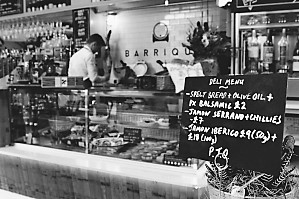 BARRIQU
DELI MENU
-SPELT BREAD + OLIVE OIL +
PX BALSAMIC £2
-JAMON SERRANO + CHILLIES
-£7
-JAMON IBERICO £9 (50g) +
£18 (100g)
P.T.O